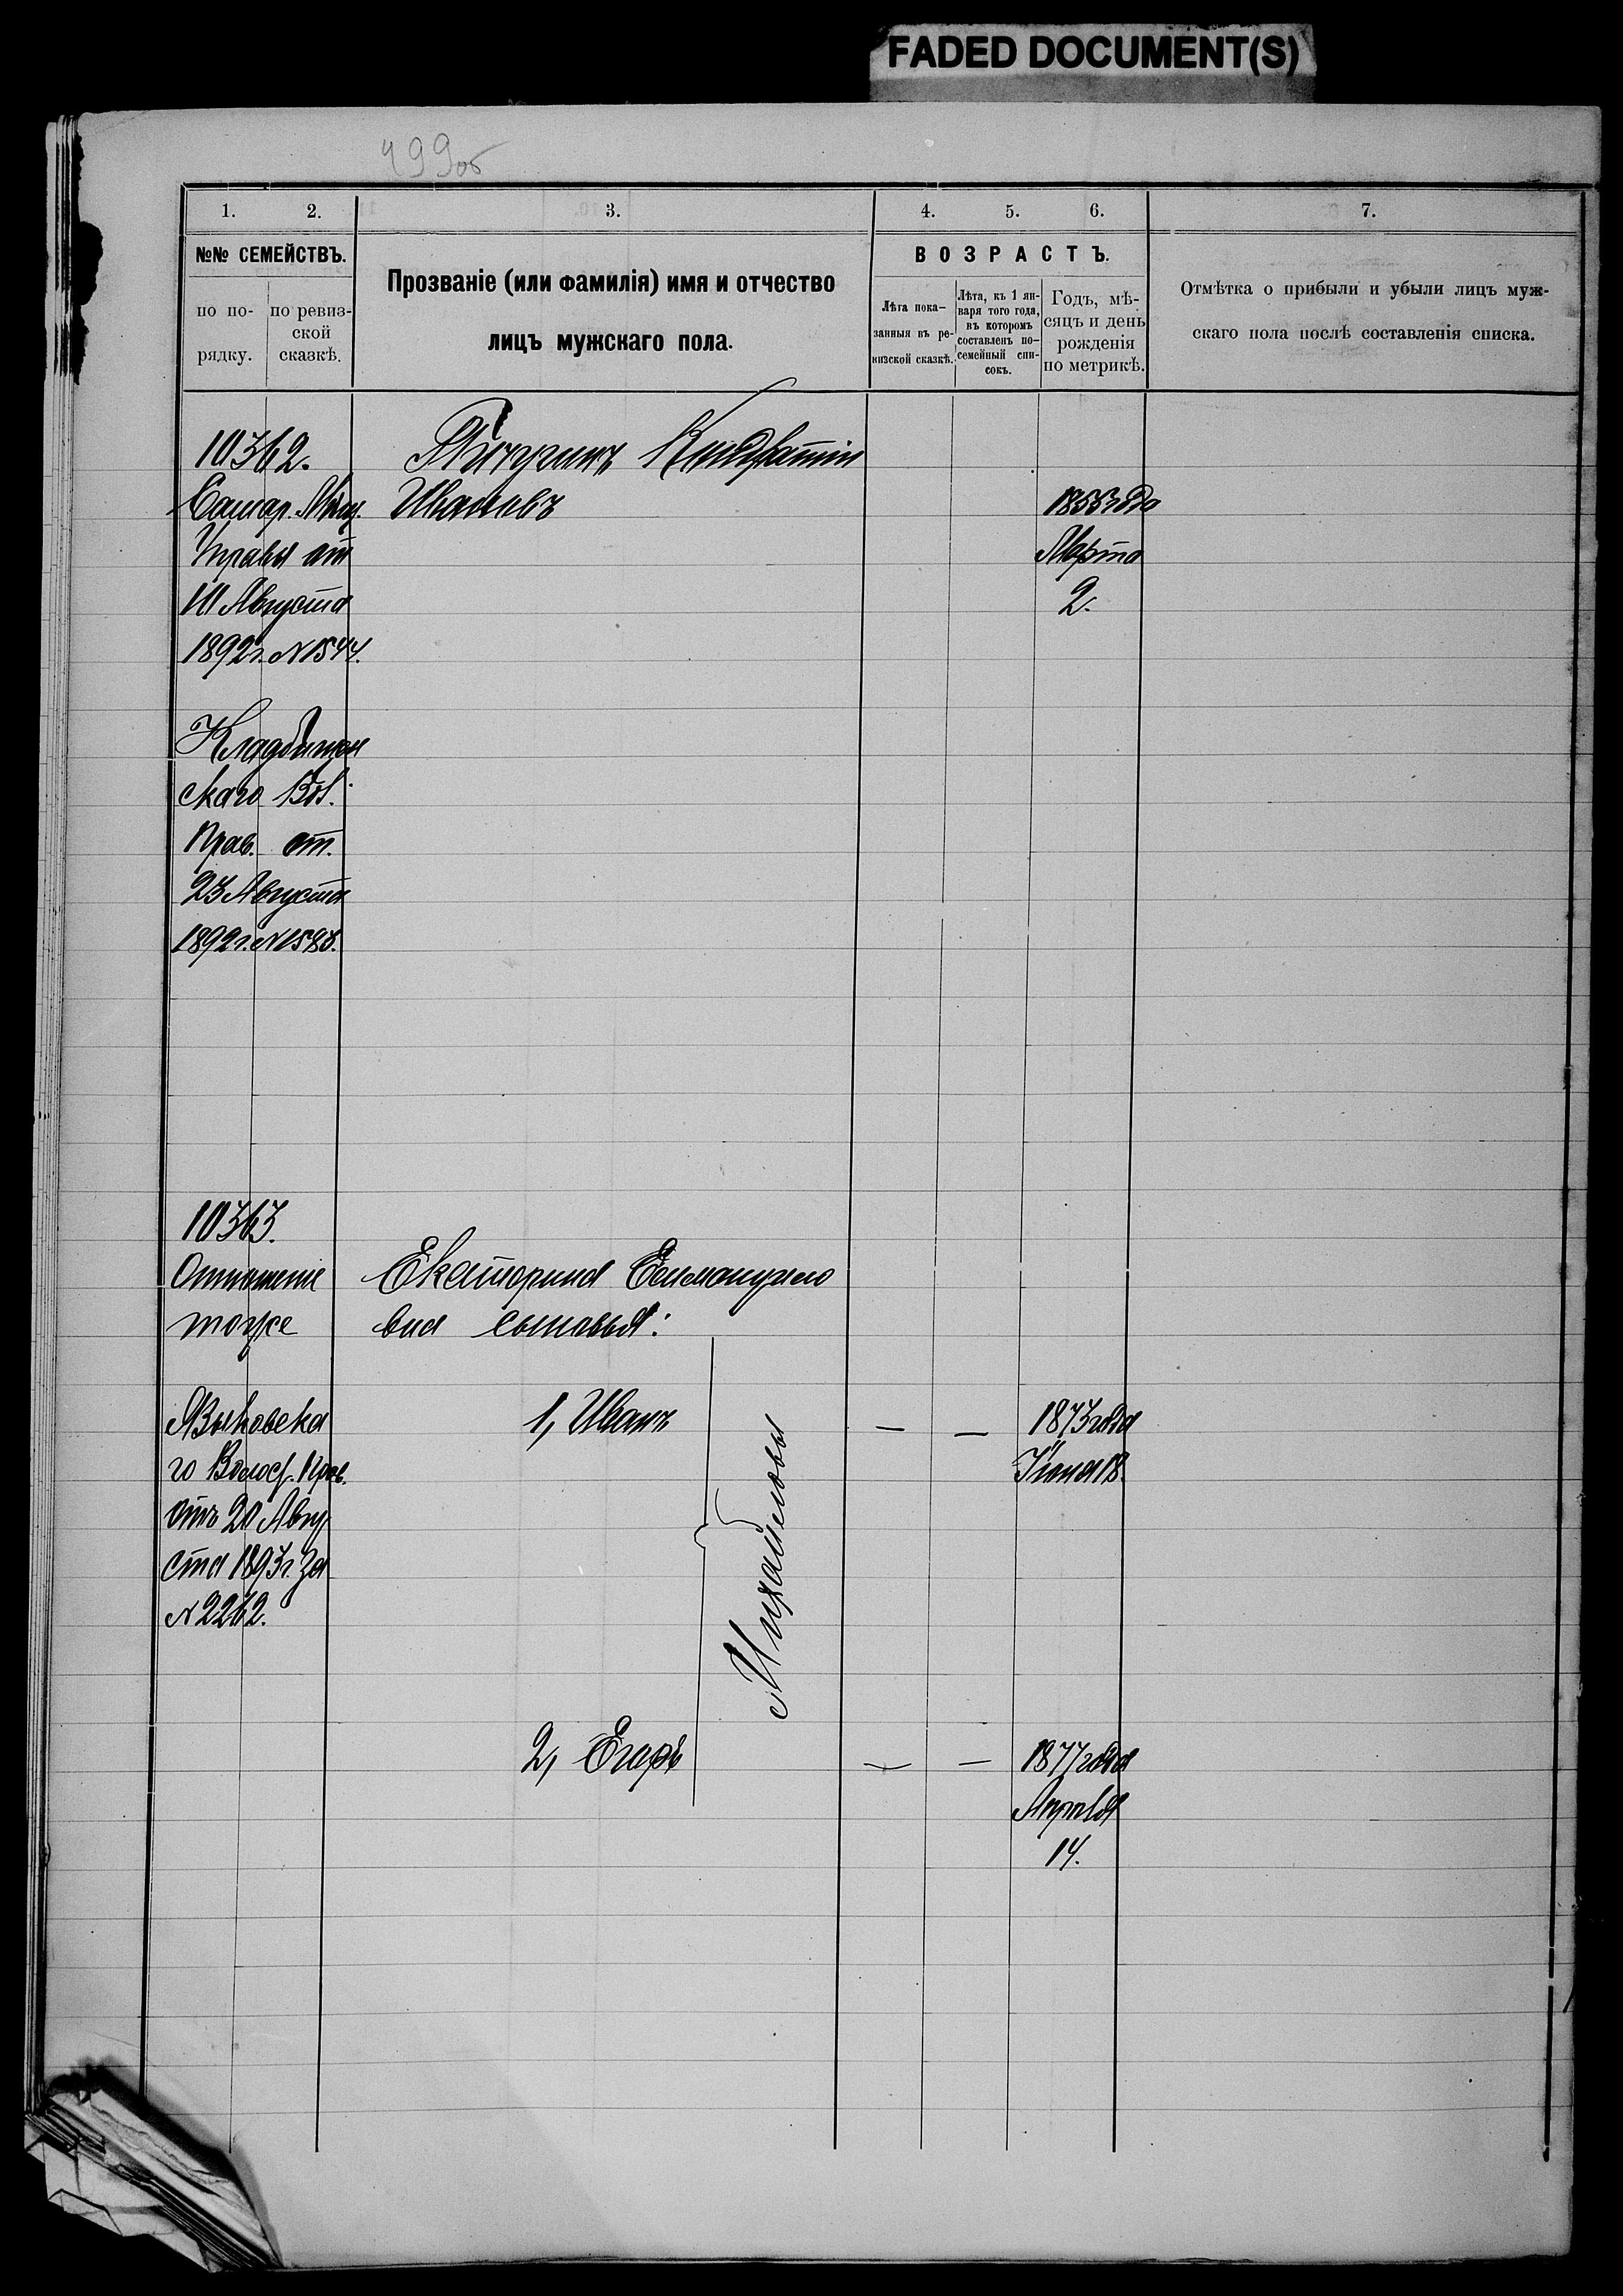 FADED DOCUMENT(S)
499об
1. 2. 3. 4. 5. 6. 7.
№№ СЕМЕЙСТВЪ.
по по-
рядку.
по ревиз-
ской
сказкѣ.
Прозваніе (или фамилія) имя и отчество
лицъ мужскаго пола.
ВОЗРАСТЪ.
Лѣта пока-
занныя въ ре-
визской сказкѣ.
Лѣта, къ 1 ян-
варя того года,
въ которомъ
составленъ по-
семейный спи-
сокъ.
Годъ, мѣ-
сяцъ и день
рожденія
по метрикѣ.
Отмѣтка о прибыли и убыли лицъ муж-
скаго пола послѣ составленія списка.
10362.
Самар. Мѣщ.
Управы от
10 Августа
1892г. N1544.
Кладбищен
скаго Вол.
Прав. от.
23 Августа
1892г. N
Кондратій
Ивановъ
1855года
Марта
2.
10363.
Отношение
тоже
Языковска
го Волос. Прав.
отъ 20 Авгу
ста 1893г. за
N2262.
Екатерина
вна сыновья:
1, Иванъ
2, Егоръ
Михайловы
— — 1873года
Іюня 18.
— — 1877года
Апреля
14.